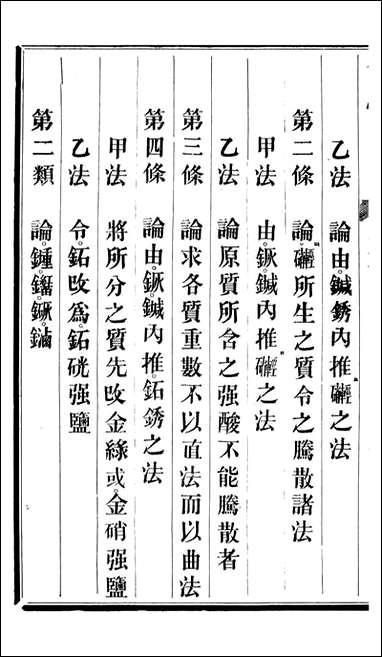 乙法　論由鏚銹內推𥗬之法
第二條　論𥗬所生之質令之騰散諸法
甲法　由鏃鏚內推𥗬之法
乙法　論原質所含之强酸不能騰散者
第三條　論求各質重數不以直法而以曲法
第四條　論由鏃鏚內推鉐銹之法
甲法　將所分之質先改金綠或金硝强鹽
乙法　令鉐改爲鉐硄强鹽
第二類　論鍾鏀